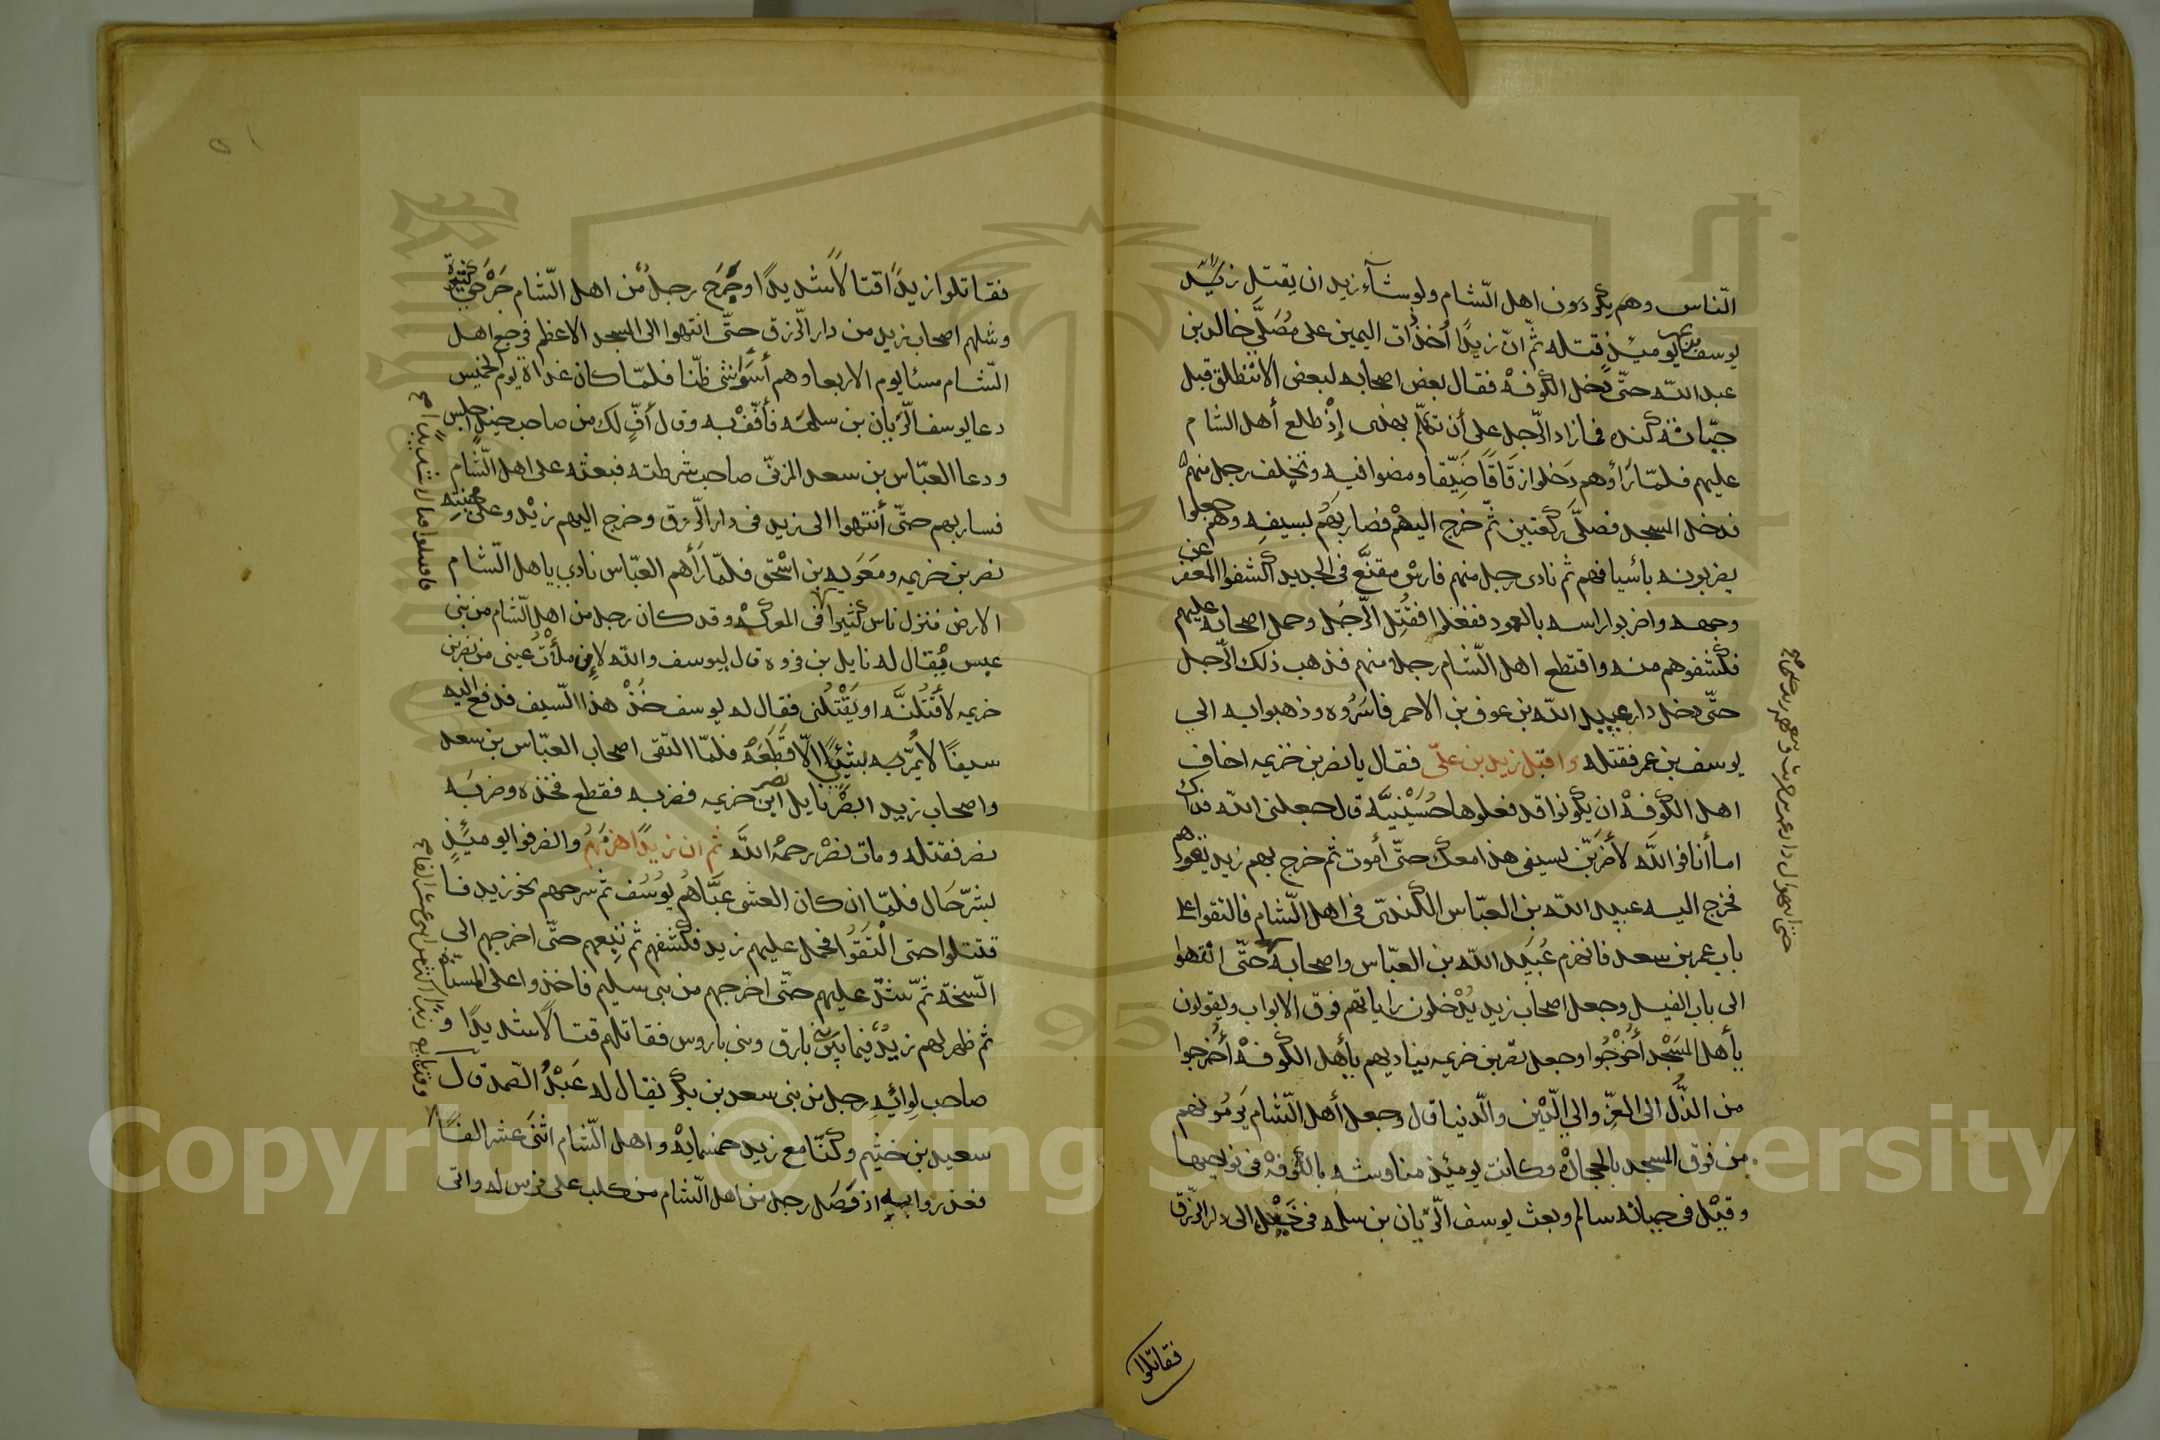 الناس وهم يكردون اهل الشام ولو شآء زيد ان يقتل زيد
يوسف بن عمر يومئذ قتله ثم ان زيدا أخذ ذات اليمين على مصلى خالد بن
عبد الله حتى دخل الكوفة فقال بعض اصحابه لبعض الا ننطلق قبل
جبانة كنده فما زاد الرجل على أن تكلم بهذا إذ طلع أهل الشام
عليهم فلما رأوهم دخلوا زقاقا ضيقا ومضوا فيه وتخلف رجل منهم
فدخل المسجد فصلى ركعتين ثم خرج اليهم فضاربهم بسيفه وهم جعلوا
يضربونه بأسيافهم ثم نادى رجل منهم فارس مقنع في الحديد اكشفوا المغفر عن
وجهه واضربوا راسه بالعمود ففعلوا فقتل الرجل وحمل اصحابه عليهم
فكشفوهم منه واقتطع اهل الشام رجلا منهم فذهب ذلك الرجل
حتى دخل دار عبيد الله بن عوف بن الاحمر فاسروه وذهبوا به الي
يوسف بن عمر فقتله واقبل زيد بن علي فقال يا نصر بن خزيمه اخاف
اهل الكوفة ان يكونوا قد فعلوها حسينية قال جعلنى الله فداك
اما أنا فوالله لأضربن بسيفى هذا معك حتى أموت ثم خرج بهم زيد يقودهم
فخرج اليه عبيد الله بن العباس الكندى في اهل الشام فالتقوا على
باب عمر بن سعد فانهزم عبيد الله بن العباس واصحابه حتى انتهوا
الى باب الفيل وجعل اصحاب زيد يدخلون راياتهم فوق الابواب ويقولون
يأهل المسجد أخرجوا وجعل نصر بن خزيمه يناديهم يأهل الكوفة أخرجوا
من الذل الى العز والي الدين والدنيا قال وجعل أهل الشام يرمونهم
من فوق المسجد بالحجارة وكانت يومئذ مناوشه بالكوفة فى نواحيها
وقيل فى جبانه سالم وبعث يوسف الريان بن سلمه فى خيل الى دار الرزق
فقاتلوا
فقاتلوا زيدا قتالا شديدا وجرح رجل من اهل الشام جرحى كثيرة
وشلهم اصحاب زيد من دار الرزق حتى انتهوا الى المسجد الاعظم فرجع اهل
الشام مسئا يوم الاربعا وهم أسوا شى ظنا فلما كان غداة يوم الخميس
دعا يوسف الريان بن سلمه فأفف به وقال أف لك من صاحب خيل اجلس
ودعا العباس بن سعد المزنى صاحب شرطته فبعثه على اهل الشام
فسار بهم حتى أنتهوا الى زيد في دار الرزق وخرج اليهم زيد وعلى مجنبته
نصر بن خزيمه ومعويه بن اسحق فلما رأهم العباس نادي ياهل الشام
الارض فنزل ناس كثيرا في المعركه وقد كان رجل من اهل الشام من بنى
عبس يقال له نايل بن فروه قال ليوسف والله لان ملأت عينى من نصر بن
خزيمه لأقتلنه او يقتلنى فقال له يوسف خذ هذا السيف فدفع اليه
سيفا لا يمر به بشئ الا قطعه فلما التقى اصحاب العباس بن سعد
واصحاب زيد ابصر نايل نصر ابن خزيمه فضربه فقطع فخذه وضربه
نصر فقتله ومات نصر رحمه الله ثم ان زيدا هزمهم وانصرفوا يومئذ
بشر حال فلما ان كان العشى عباهم يوسف ثم سرحهم نحو زيد فا
قتتلوا حتى التقوا فحمل عليهم زيد فكشفهم ثم تبعهم حتى اخرجهم الى
السبخة ثم شد عليهم حتى اخرجهم من بنى سليم فاخذوا على المسناة
ثم ظهر لهم زيد فيما بين بارق وبنى باروس فقاتلهم قتالا شديدا و
صاحب لوائه رجل من بنى سعد بن بكر يقال له عبد الصمد قال
سعيد بن خثيم وكنا مع زيد خمسمايه واهل الشام اثنى عشر الفا
فغدروا به اذ فصل رجل من اهل الشام من كلب على فرس له واتى